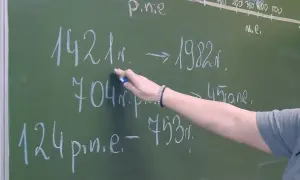 p.n.e
n.e.
1421r. → 1982r.
704r.p.n → 45 p.n.e.
124 p.n.e. – 753r.